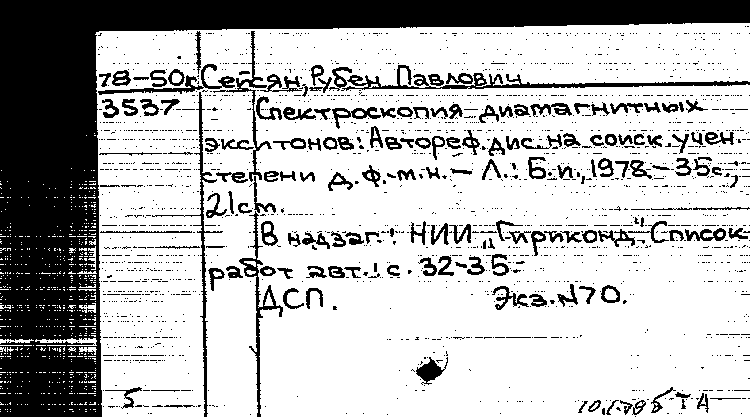 78-50к Сейсян, Рубен Павлович
3537 Спектроскопия диамагнитных
экситонов: Автореф. дис. на соиск. учен.
степени д. ф.-м. н. - Л.: Б. и., 1978. - 35с.;
21cm.
В надзаг.: НИИ „Гириконд“. Список
работ авт.: с. 32-35.-
ДСП. Экз. N70.
5